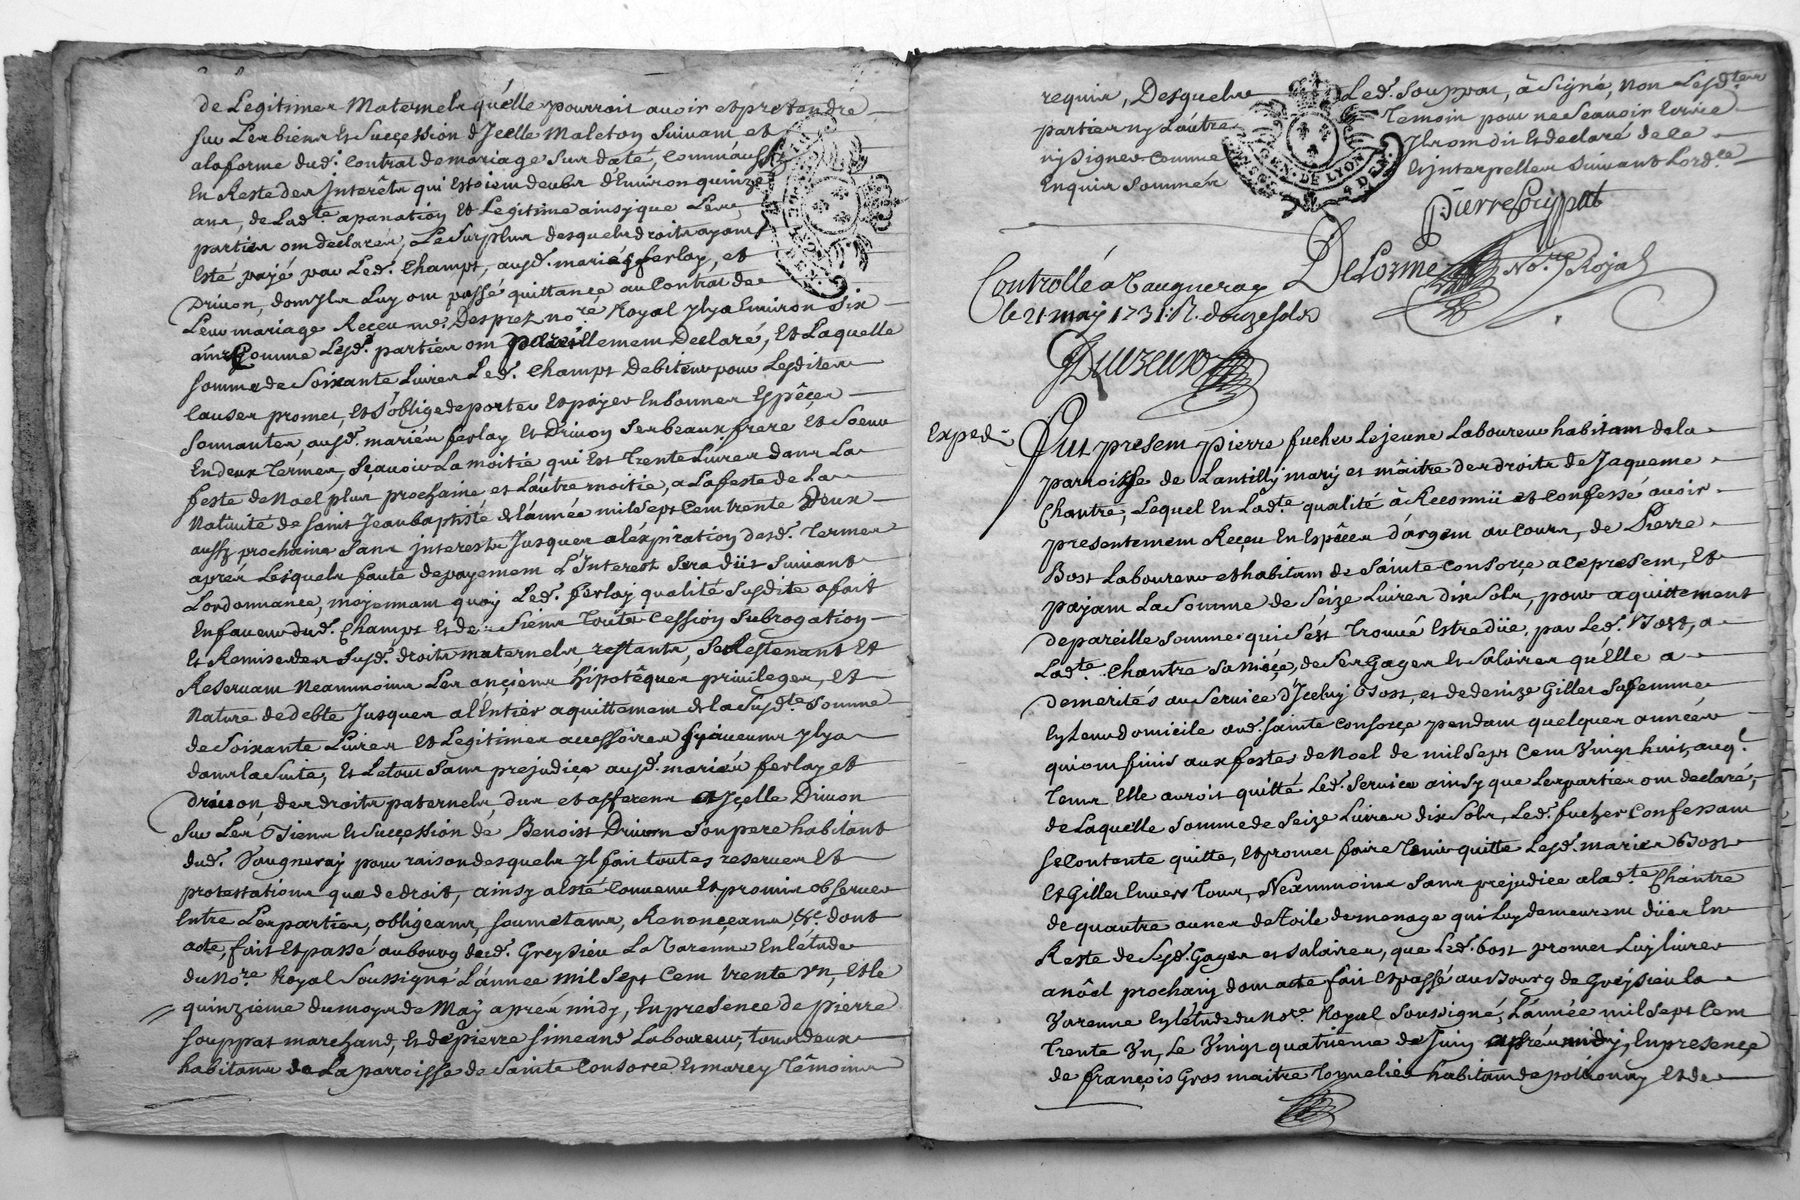 de Legitimes Maternels qu'elle pourroit avoir et pretendre
sur Les biens et Succession d'Jcelle Maleton Suivant et
a la forme dud. Contrat de mariage Sus daté, Comm'aussy
En Reste des jnterêts qui Estoient deubs d'Environ quinze
ans, de Ladte apanation Et Legitime ainsy que Les
parties ont declarés, Le Surplus desquels droits ayant
Esté payé par Led. Champt, auxd. mariés ferlay, et
Drivon, dont Jls Luy ont passé quittance au Contrat de
Leur mariage Reçeu me. Desprez nore Royal Jl y a Environ Six
ans Comme Lesd. parties ont pareillement Declaré, Et Laquelle
somme de Soixante Livres Led. Champt debiteur pour Lesdites
Causes promet, Et s'oblige de porter Et payer En bonnes Espêçes
sonnantes, auxd. mariés ferlay Et Drivon Ses beaux frere Et Soeur
En deux Termes, Sçauoir La moitié qui Est Trente Livres dans La
feste de Noel plus prochaine, et L'autre moitié, a La feste de La
Nativité de Saint Jean baptiste de l'année mil Sept Cent trente Deux
aussy prochaine Sans jnterests Jusques a l'éxpiration desd. Termes
aprés Lesquels faute de payement L'Interest Sera dû Suivant
L'ordonnance, moyennant quoy Led. ferlay qualité Susdite a fait
En faveur dud. Champt Et des Siens Toute Cession Subrogation
Et Remise des Susd. droits maternels, restants, Se Restenant Et
Reservant Neammoins Les ançiens hipotêques privileges, Et
Nature de debte Jusques a l'Entier aquittement de la Susdte Somme
de Soixante Livres Et Legitimes accessoires sy aucuns Jl y a
dans la Suite, Et Le tout Sans prejudice auxd. mariés ferlay et
Drivon, des droits paternels, dus et afferens a Jçelle Drivon
Sur Les Biens Et Succession de Benoist Drivon Son pere habitant
dud. Vaugneray pour raison desquels Jl fait toutes reserves Et
protestations que de droit, ainsy a esté Convenu Et promis observer
Entre Les parties, obligeans, soumetans, Renonçeans &c. dont
acte, fait Et passé au bourg dud. Greysieu La Varenne En l'étude
du Nore Royal Soussigné L'année Mil Sept Cent trente Vn, Et le
quinzieme du moys de May aprés midy, En presence de pierre
souppat marchand, Et de pierre simeand Laboureur, tous deux
habitans de La parroisse de Sainte Consorce Et marcy Têmoins
requis, Desquels Led. Souppat, a Signé, Non Lesdtes
parties ny L'autre Temoin pour ne Scavoir Ecrire
ny Signer Comme Jls ont dit Et declaré de ce
Enquis Sommés Et jnterpellés Suivant L'ordce
GEN. DE LYON 4 DEN.
Pierre Souppat
Delorme Nore Royal
Controllé a Vaugneray
le 21 may 1731. R. douze sols
Exped.
Fut present pierre fuchez Le jeune Laboureur habitant de la
parroisse de Lantilly mary et mâitre des droits de Jaqueme
Chantre, Lequel En Ladte qualité à Reconnü et Confessé auoir
presentement Reçeu En Espêces d'argent au Cours, de Pierre
Bost Laboureur et habitant de Sainte Consorçe a ce present, Et
payant La Somme de Seize Livres dix Sols, pour aquittement
de pareille Somme qui s'ést Trouué Estre düe, par Led. Bost, a
Ladte Chantre Sa Nièçe, de Ses Gages Et Salaires qu'Elle a
demerités au Service d'Jceluy Bost, et de denize Gilles Sa femme
En Leur domicile aud. Sainte Consorçe pendant quelques années
qui ont finis aux festes de Noel de mil Sept Cent Vingt huit, auql.
Tems Elle auroit quitté Led. Service ainsy que Les parties ont declaré,
de Laquelle Somme de Seize Livres dix Sols, Led. fuchez Confessant
se Contente quitte, Et promet faire Tenir quitte Lesd. mariés Bost
Et Gilles Envers Tous, Néammoins Sans prejudice a Ladte Chantre
de quattre aunes de toile de menage qui Luy demeurent dües En
Reste de Sesd. Gages et Salaires, que Led. Bost promet Luy livrer
a Nôel prochain dont acte fait Et passé au Bourg de Greysieu la
Varenne En l'étude du Nore Royal Soussigné, L'année mil Sept Cent
Trente Vn, Le Vingt quatrieme de Juin aprés midy, En presençe
de françois Gros maitre Tonnelier habitant de pollionay Et de